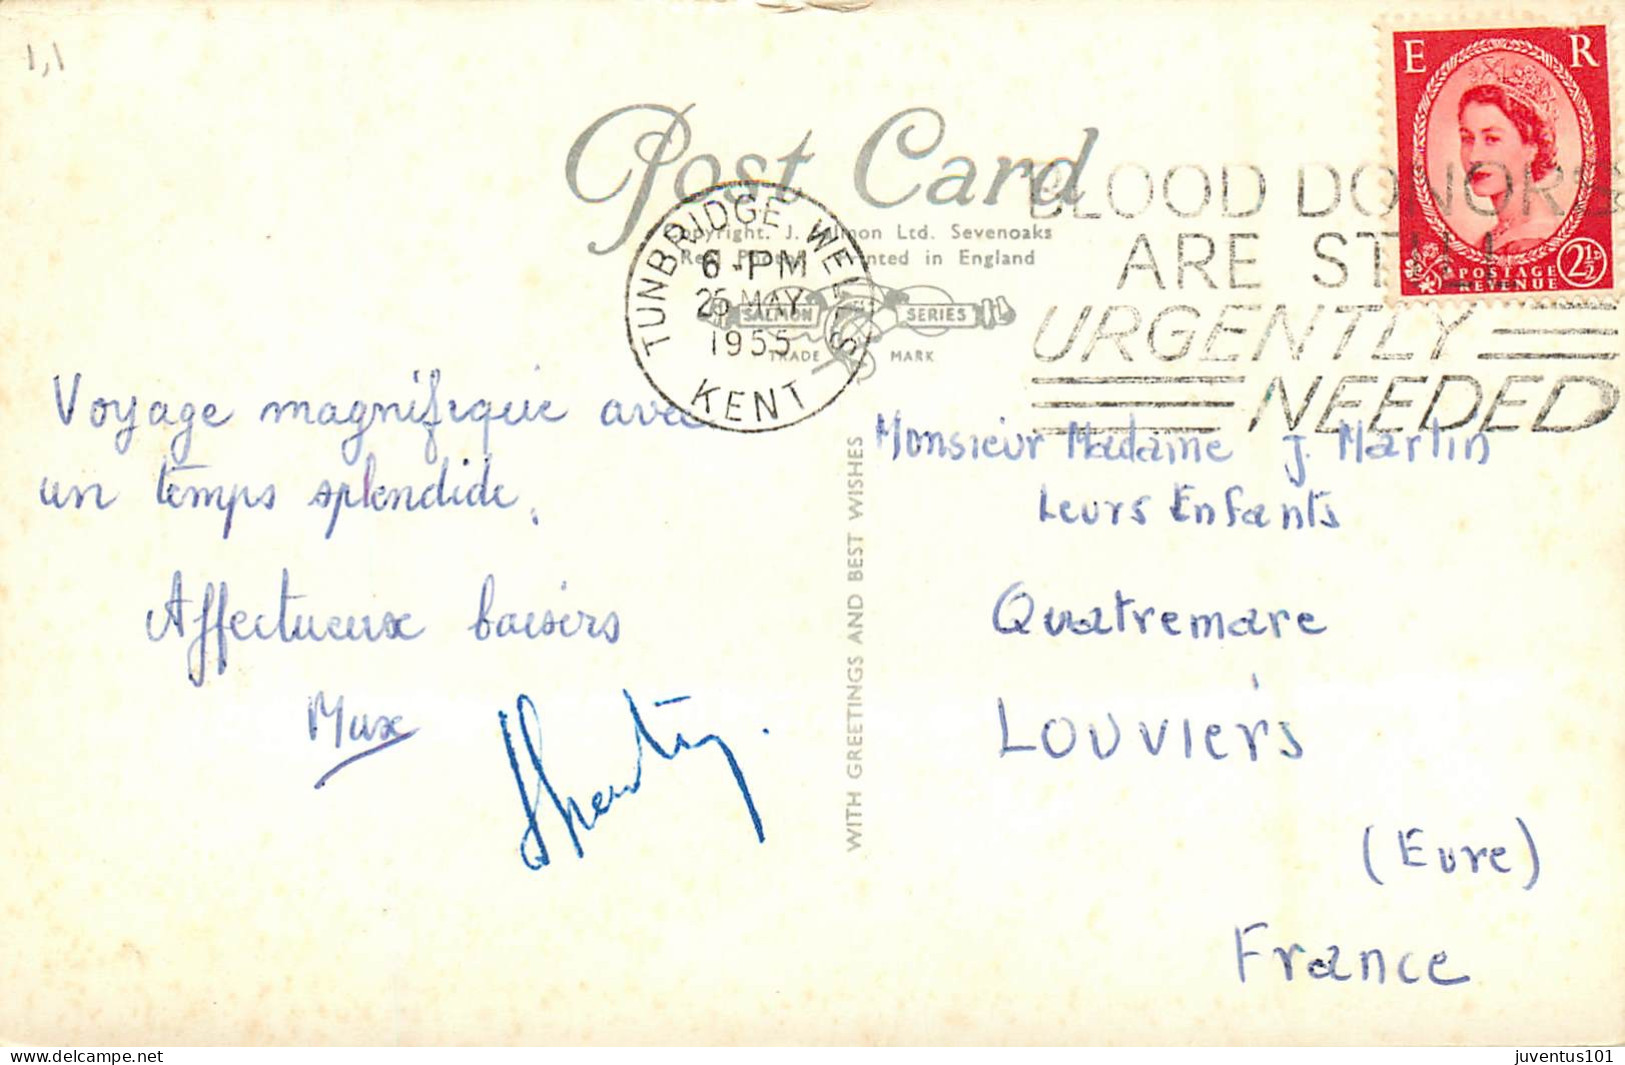 1,1
Post Card
Copyright. J. Salmon Ltd. Sevenoaks
Real Photo Printed in England
SALMON SERIES
TRADE MARK
TUNBRIDGE WELLS
6-PM
MAY
1955
KENT
BLOOD DONORS
ARE STILL
URGENTLY
NEEDED
E R
POSTAGE
REVENUE
2½D
Voyage magnifique avec
un temps splendide.
Affectueux baisers
Max
WITH GREETINGS AND BEST WISHES
Monsieur Madame J. Martin
Leurs Enfants
Quatremare
Louviers
(Eure)
France
www.delcampe.net
juventus101